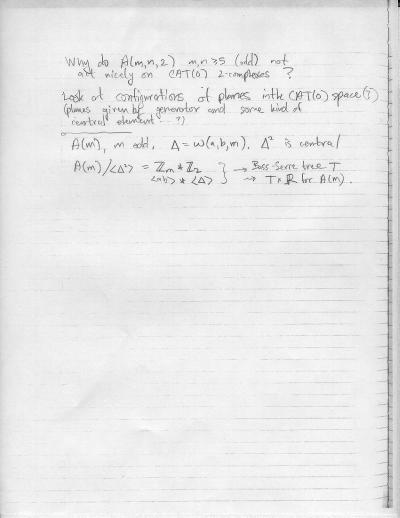 Why do A(m,n,2) m,n ≥5 (odd) not
act nicely on CAT(0) 2-complexes ?
Look at configurations of planes in the CAT(0) space(?)
(planes given by generator and some kind of
central element ... ?)
A(m), m odd, Δ = w(a,b,m). Δ² is central
A(m)/<Δ²> = ℤm * ℤ2 } → Bass-Serre tree T
<ab> * <Δ> → T × ℝ for A(m).